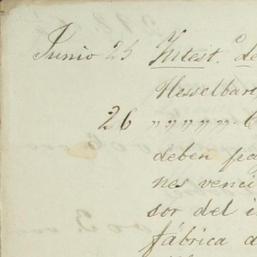 Junio 25 Intest.º de
Hesselbart
26 " " " " "
deben pa
nes venci
sor del i
fábrica d